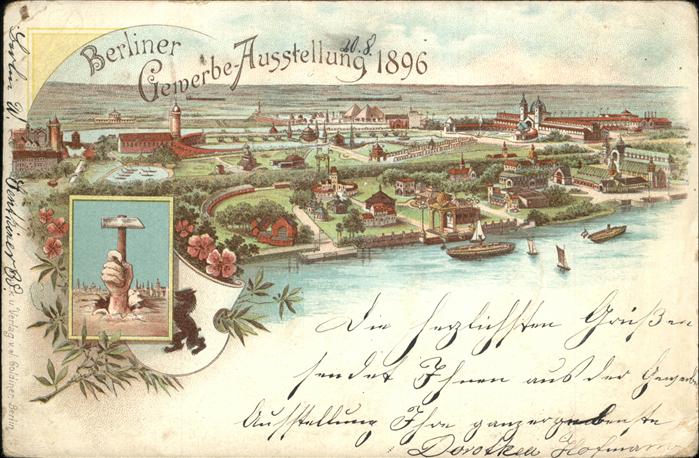 Berliner
Gewerbe-Ausstellung 1896
20.8.
Berlin W.
Verlag v. J. Goldiner, Berlin
Die herzlichsten Grüße
sendet Ihnen aus der Gewerbe
Ausstellung Ihre ganz ergebenste
Dorothea Hofmann